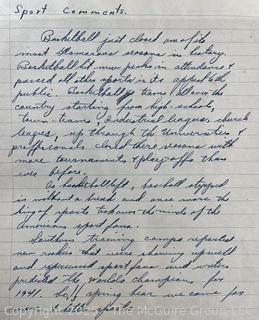 Sport Comments.
Basketball just closed one of its
most glamorous seasons in history.
Basketball hit new peaks in attendance &
passed all other sports in its appeal to the
public. Basketball teams all over the
country starting from high-schools,
town teams, Industrial leagues, church
leagues, up through the Universities &
professionals closed there seasons with
more tournaments & play-offs than
ever before.
As basketball left, baseball stepped
in without a break and once more the
king of sports took over the minds of the
American sport fans.
Southern training camps reported
new rookies that were showing up well
and experienced sport fans and writers
predicted the worlds champions for
1941. So, spring hear we come for